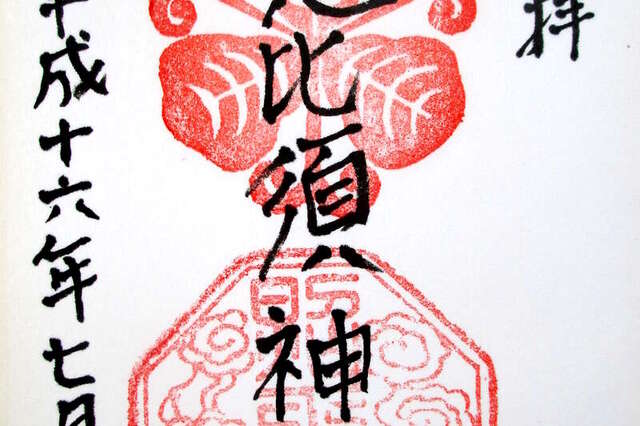 拝
比須神
平成十六年七月